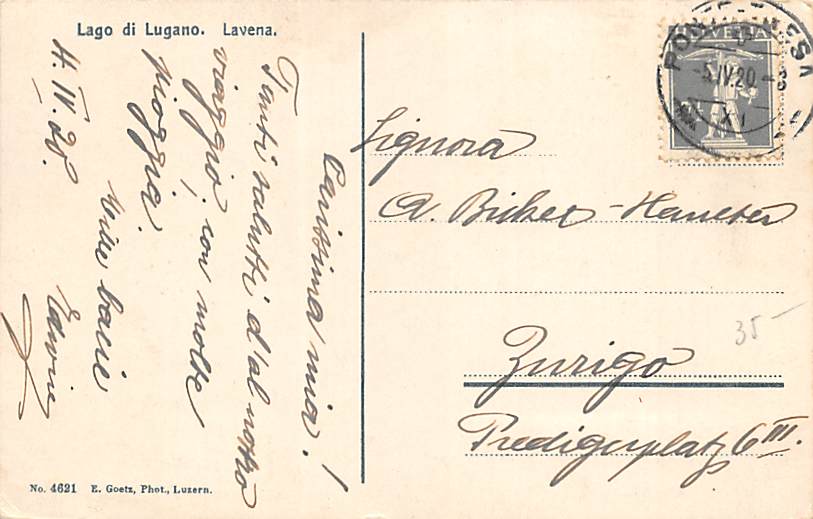 Lago di Lugano. Lavena.
4. IV. 20.
Carissima mia!
Tanti saluti d'al nostro
viaggio, con molte
pioggia.
Mille bacie
HELVETIA
5.IV.20
Signora
A. Bickel-Hanselen
Zurigo
Predigerplatz 6 III.
35-
No. 4621 E. Goetz, Phot., Luzern.